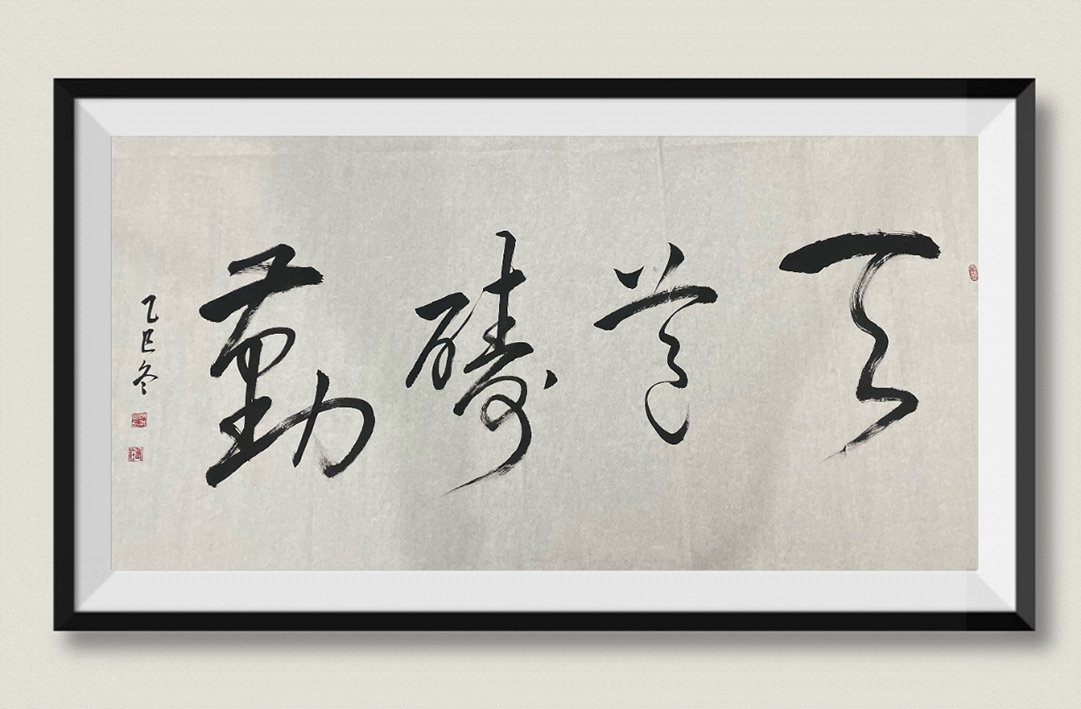 天道醻勤
乙巳冬